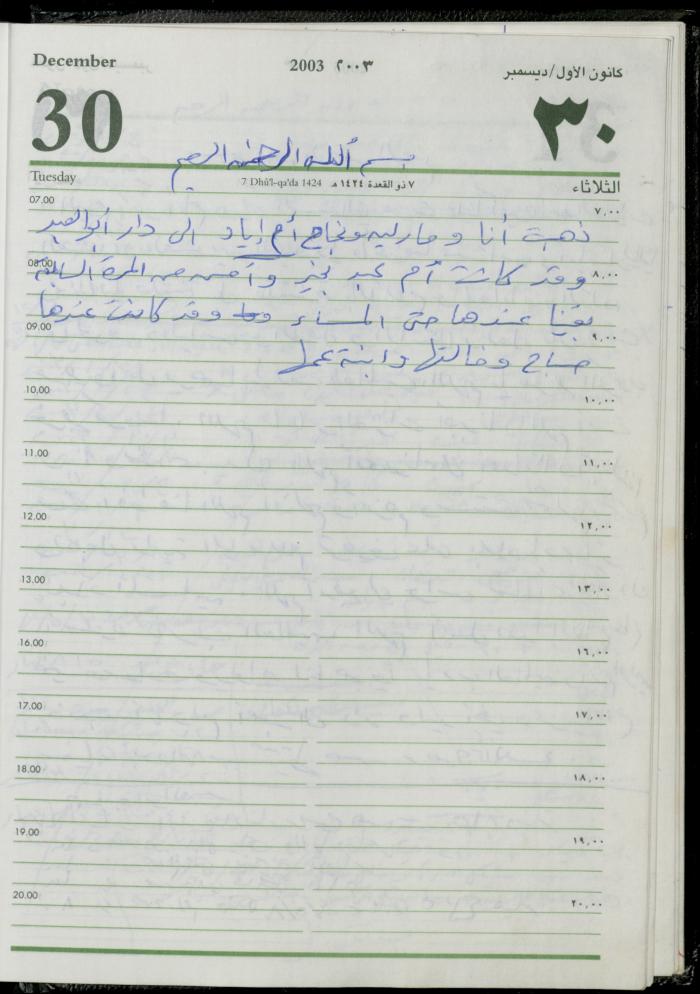 December 2003 ٢٠٠٣ كانون الأول/ديسمبر
30 ٣٠
بسم الله الرحمن الرحيم
Tuesday 7 Dhū'l-qa'da 1424 ٧ ذو القعدة ١٤٢٤ هـ الثلاثاء
07.00 ٧,٠٠
ذهبت أنا و ونجاح أم إياد الى دار أبو العبد
08.00 ٨,٠٠
وقد كانت أم عبد بخير وأحسن من المرة السابقة
بقينا عندها حتى المساء وقد كانت عندها
09.00 ٩,٠٠
صباح وخالتها وابنة عمها
10.00 ١٠,٠٠
11.00 ١١,٠٠
12.00 ١٢,٠٠
13.00 ١٣,٠٠
16.00 ١٦,٠٠
17.00 ١٧,٠٠
18.00 ١٨,٠٠
19.00 ١٩,٠٠
20.00 ٢٠,٠٠